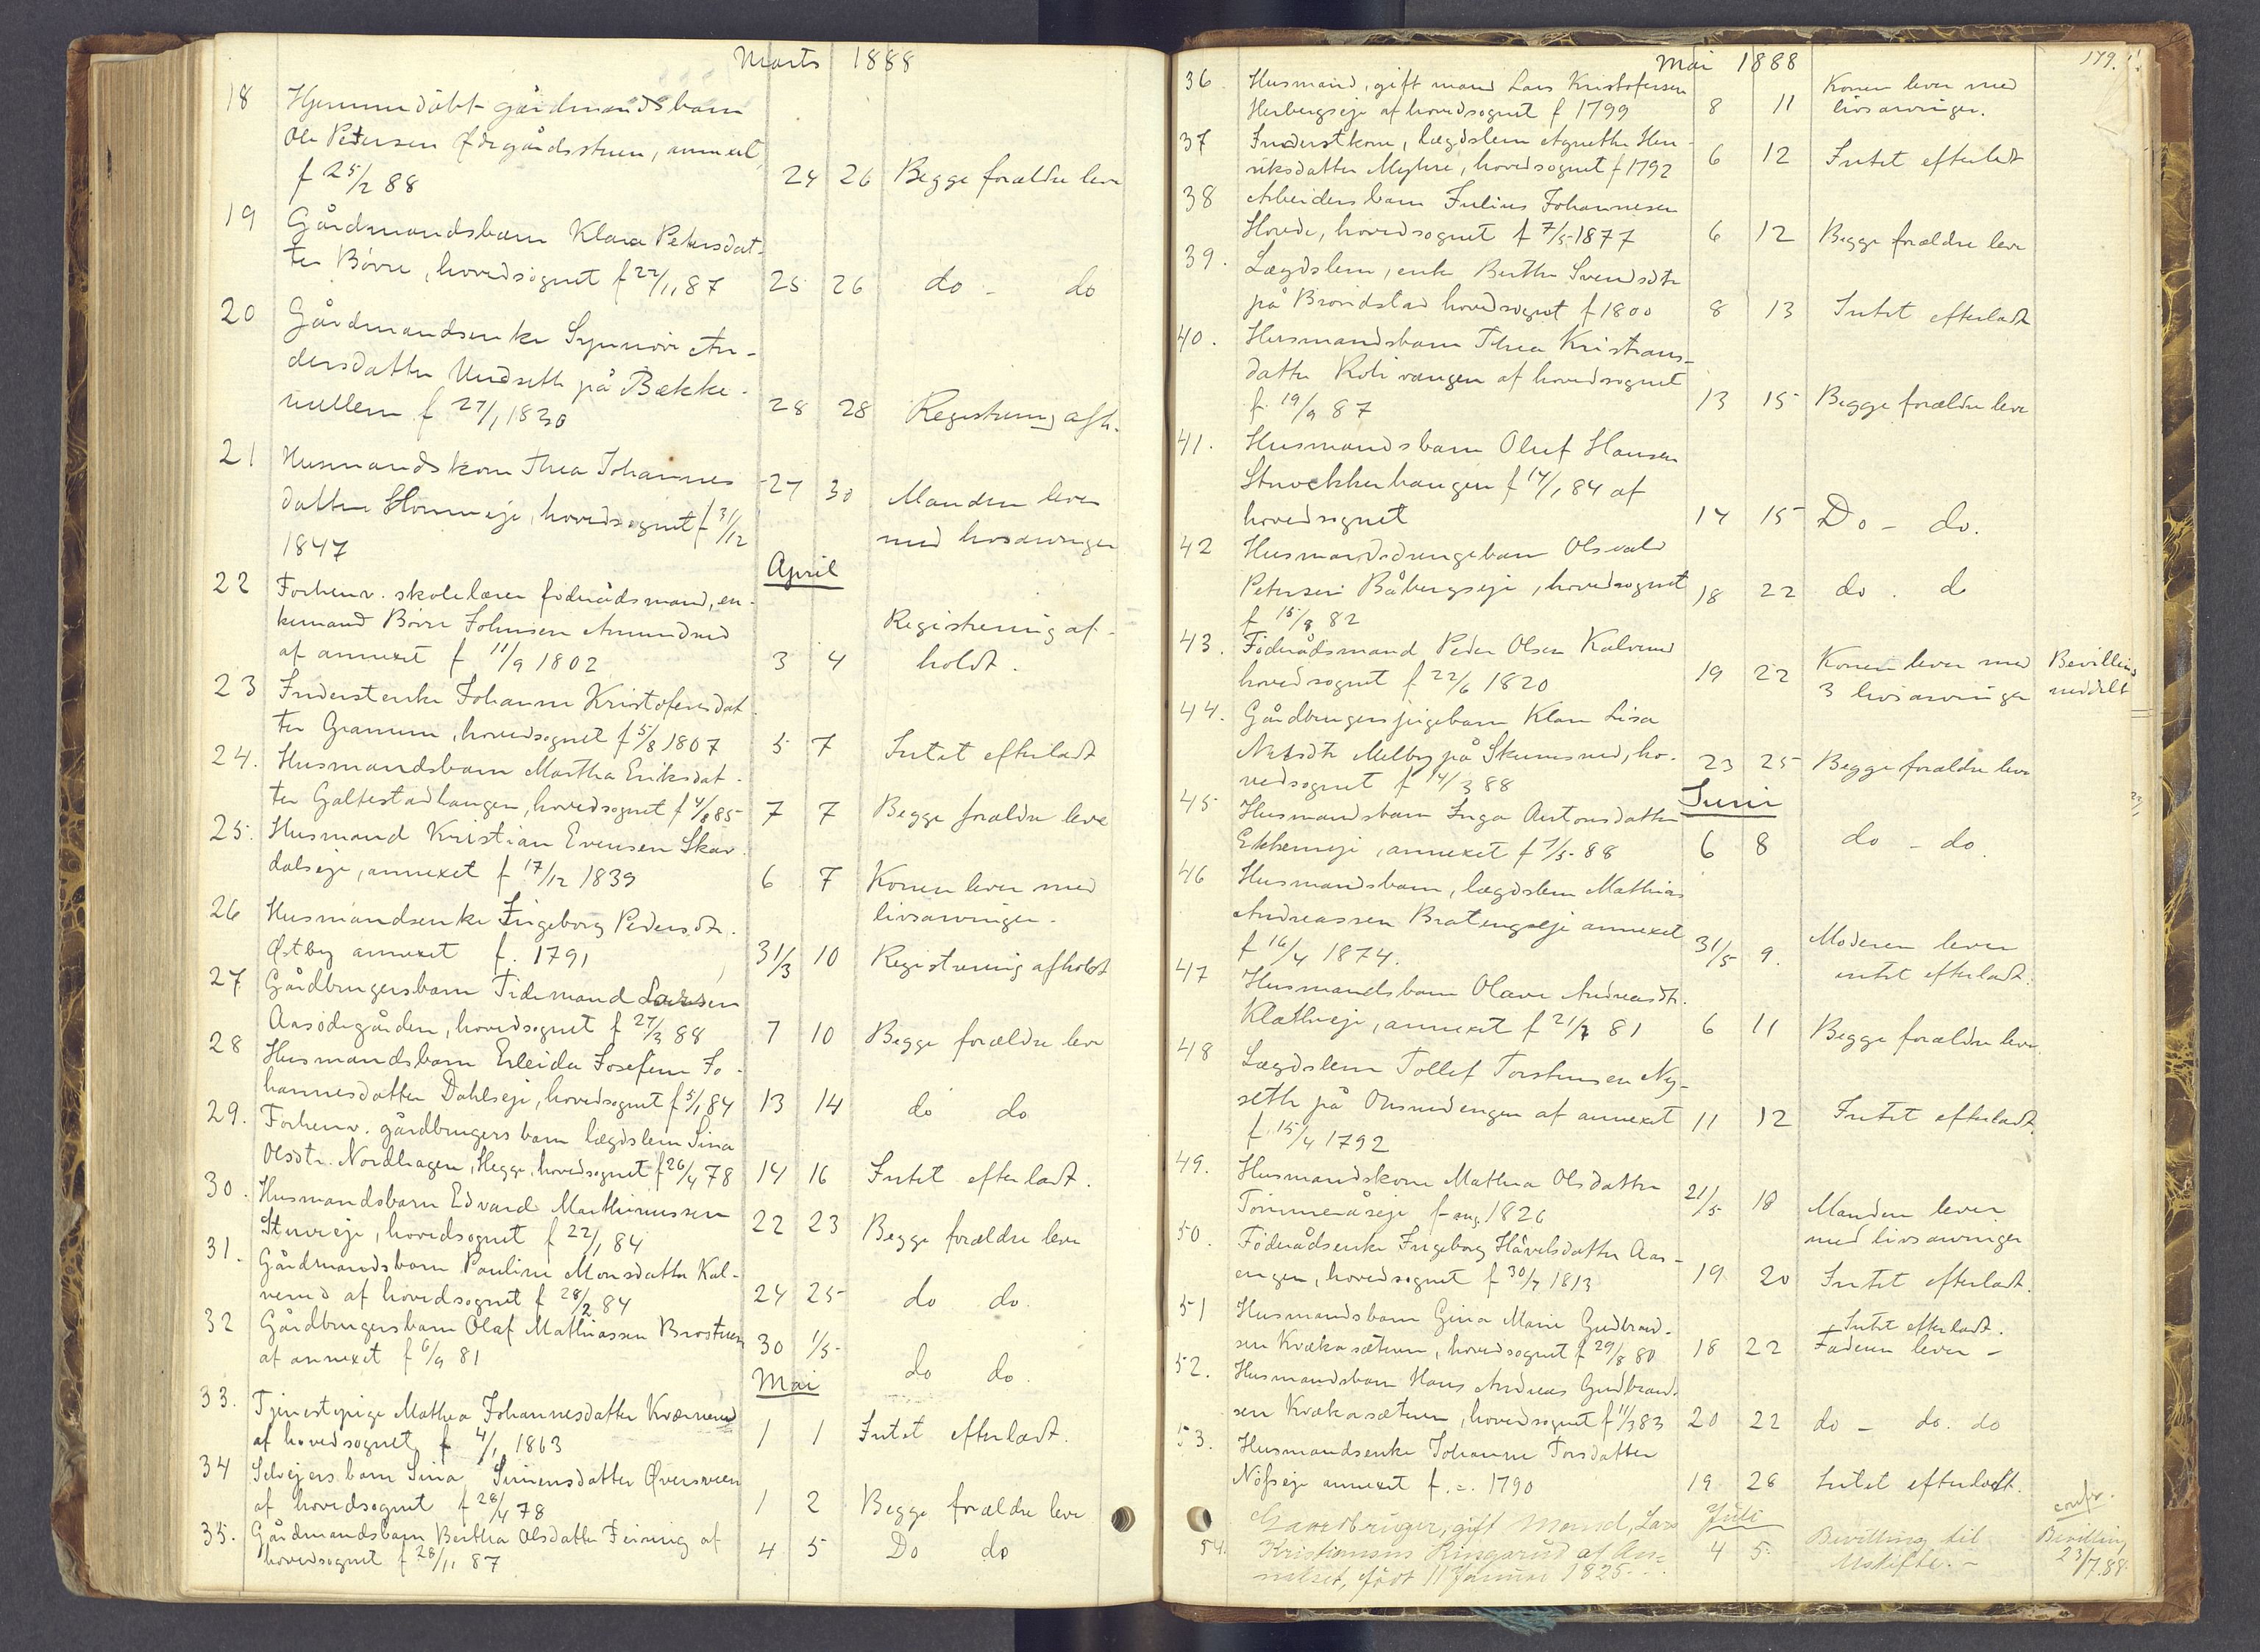 Marts 1888
18 Hjemmedöbt gårdmandsbarn
Ole Petersen Ødegårdsstuen, annexet
f 25/2 88 24 26 Begge forældre leve
19 Gårdmandsbarn Klara Petersdat-
ter Bövre, hovedsognet f 22/11 87 25 26 do - do
20 Gårdmandsenke Synnöve An-
dersdatter Undseth på Bække-
mellem f 27/1 1830 28 28 Registrering afh.
21 Husmandskone Thea Johannes
datter eje, hovedsognet f 31/12 27 30 Manden lever
1847 med livsarvinger
April
22 Forhenv. skolelærer föderådsmand, en-
kemand Börre Johnsen Amundrud Registrering af-
af annexet f 11/9 1802 3 4 holdt.
23 Inderstenke Johanne Kristofersdat-
ter Granum, hovedsognet f 5/8 1807 5 7 Intet efterladt
24. Husmandsbarn Martha Eriksdat-
ter Galtestadhaugen, hovedsognet f 4/8 85 7 7 Begge forældre leve
25. Husmand Kristian Evensen Skar-
dalseje, annexet f 17/12 1839 6 7 Konen lever med
livsarvinger.
26 Husmandsenke Ingeborg Pedersdtr.
Østby annexet f. 1791 31/3 10 Registrering afholdt
27 Gårdbrugersbarn Tidemand Larsen
Aasödegården, hovedsognet f 27/3 88 7 10 Begge forældre leve
28 Husmandsbarn Erleida Josefine Jo-
hannesdatter Dahlseje, hovedsognet f 5/1 84 13 14 do do
29. Forhenv. gårdbrugers barn lægdslem Sina
Olsdtr. Nordhagen, Hegge, hovedsognet f 26/4 78 14 16 Intet efterladt.
30. Husmandsbarn Edvard Marthinussen
eje, hovedsognet f 22/1 84 22 23 Begge forældre leve
31. Gårdmandsbarn Pauline Monsdatter Kal-
verud af hovedsognet f 28/2 84 24 25 do do.
32 Gårdbrugersbarn Olaf Mathiassen Brostuen
af annexet f 6/9 81 30 1/5 do do.
Mai
33. Tjenestepige Mathea Johannesdatter Kværnerud
af hovedsognet f 4/1 1863 1 1 Intet efterladt.
34 Selvejers barn Sina Simensdatter Øversveen
af hovedsognet f 28/4 78 1 2 Begge forældre leve
35. Gårdmandsbarn Berthea Olsdatter Feiring af
hovedsognet f 28/11 87 4 5 Do do
Mai 1888 179.
36. Husmand, gift mand Lars Kristofersen Konen lever med
Herbergseje af hovedsognet f 1799 8 11 livsarvinger.
37 Inderstkone, lægdslem Agnethe Hen-
riksdatter Myhre, hovedsognet f 1792 6 12 Intet efterladt
38 Arbeidersbarn Julius Johannesen
Hovde, hovedsognet f 7/5 1877 6 12 Begge forældre leve
39. Lægdslem, enke Berthe Svendsdtr
på Brovdstad hovedsognet f 1800 8 13 Intet efterladt
40. Husmandsbarn Thea Kristians-
datter vangen af hovedsognet
f. 19/9 87 13 15 Begge forældre leve
41. Husmandsbarn Oluf Hansen
haugen f 14/1 84 af
hovedsognet 14 15 Do - do.
42 Husmandsdrengebarn Olsvald
Petersen Båbergseje, hovedsognet 18 22 do. do
f 15/8 82
43. Föderådsmand Peder Olsen Kalverud Konen lever med Bevilling
hovedsognet f 22/6 1820 19 22 3 livsarvinger meddelt
44. Gårdbrugers pigebarn Klara Lisa
Nilsdtr Melby på Skumsrud, ho- 23 25 Begge forældre leve
vedsognet f 14/3 88
Juni
45 Husmandsbarn Inga Antonsdatter
eje, annexet f 7/5 88 6 8 do - do.
46 Husmandsbarn, lægdslem Mathias
Andreassen Bratengseje annexet Moderen lever
f 16/4 1874. 31/5 9. intet efterladt.
47 Husmandsbarn Olave Andreasdtr.
eje, annexet f 21/7 81 6 11 Begge forældre leve.
48 Lægdslem Tollef Torstensen Ny-
seth på engen af annexet 11 12 Intet efterladt.
f 15/4 1792
49. Husmandskone Mathea Olsdatter
Tömmeråseje f aug. 1826 21/5 18 Manden lever
med livsarvinger
50. Föderådsenke Ingeborg Håvelsdatter Aas-
engen, hovedsognet f 30/7 1813 19 20 Intet efterladt.
51 Husmandsbarn Gina Marie Gudbrand- Intet efterladt.
sen Kvækasæteren, hovedsognet f 29/8 80 18 22 Faderen lever -
52. Husmandsbarn Hans Andreas Gudbrand-
sen Kvækasæteren, hovedsognet f 11/3 83 20 22 do - do. do
53. Husmandsenke Johanne Torsdatter
eje annexet f. =. 1790 19 26 Intet efterladt.
Juli
54. Gaardbruger, gift Mand, Lars confr.
Kristiansen Ringerud af An- 4 5. Bevilling til Bevilling
nekset, født 11 Januar 1825. Uskifte. - 23/7.88.